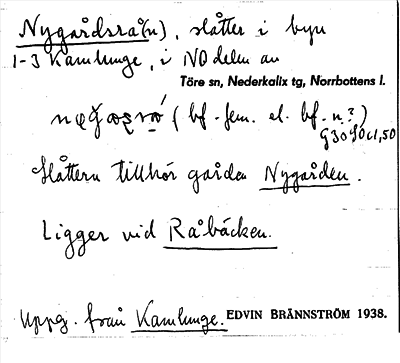 Nygårdsrå(n), slåtter i byn
1-3 Kamlunge, i NO delen av
Töre sn, Nederkalix tg, Norrbottens l.
(bf. fem. el. bf. n.?)
G30 S0c1,50
Slåttern tillhör gården Nygården.
Ligger vid Råbäcken.
Uppg. från Kamlunge. EDVIN BRÄNNSTRÖM 1938.